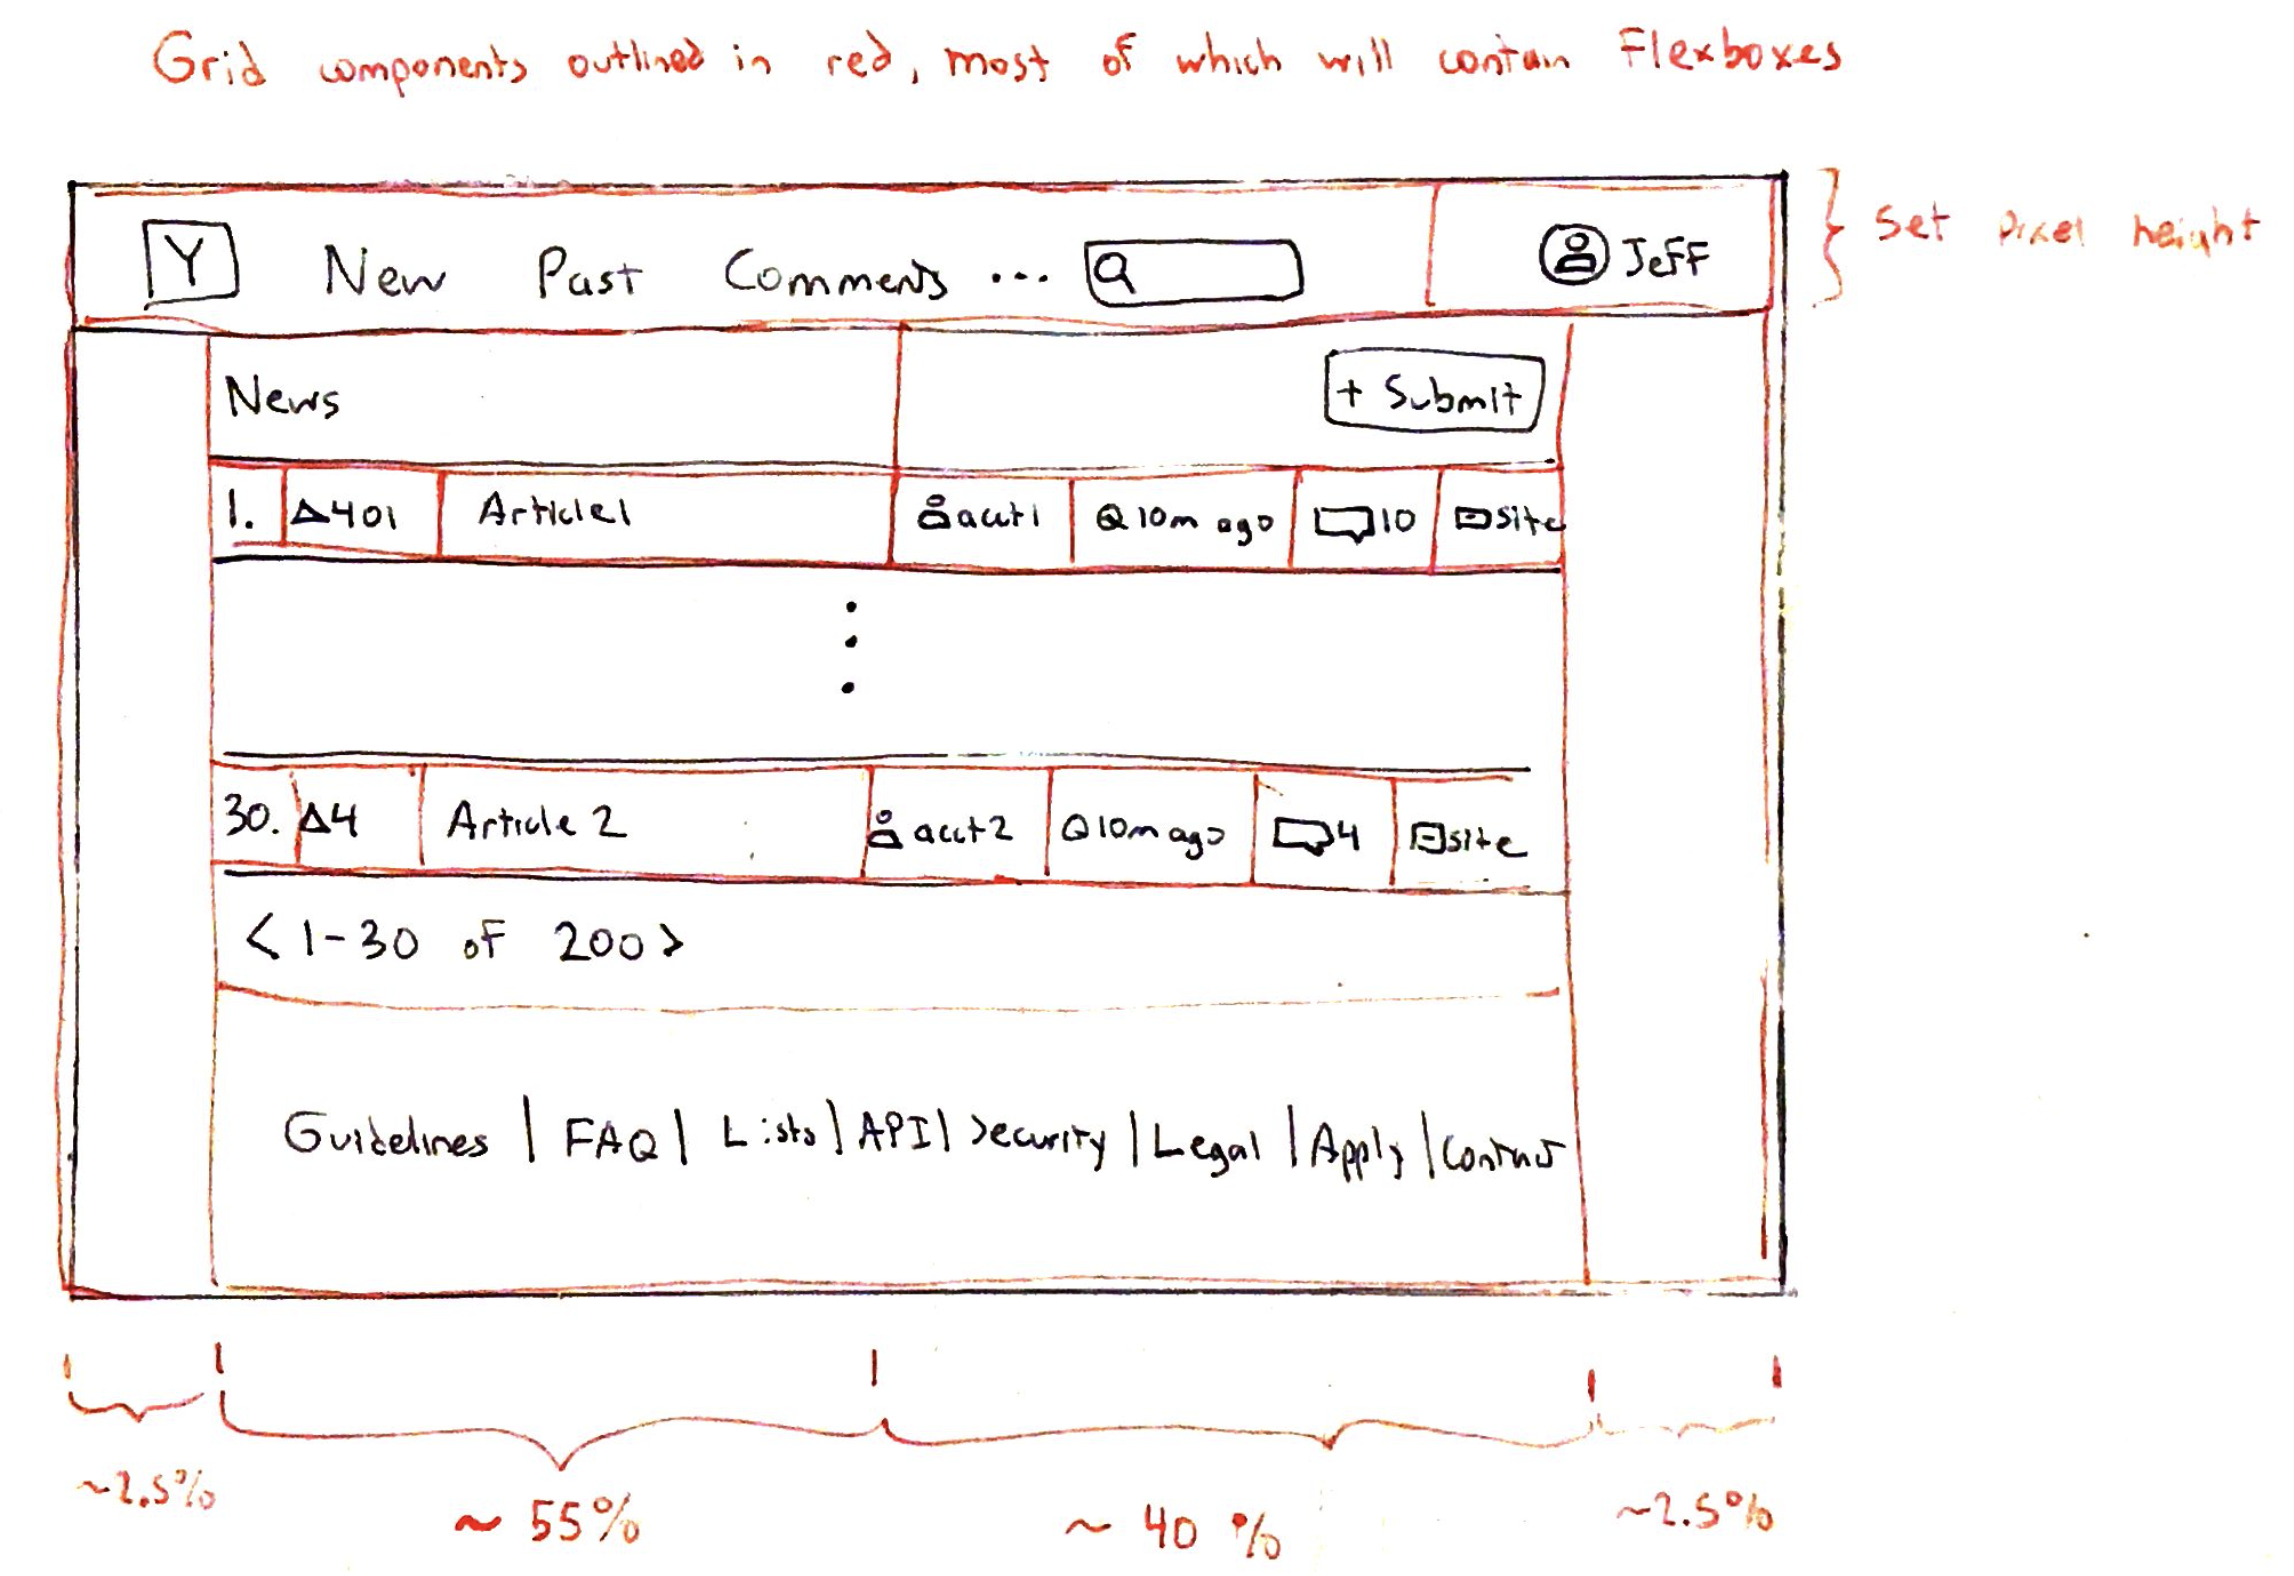 Grid components outlined in red, most of which will contain Flexboxes
Y New Past Comments ... Jeff
Set pixel height
News + Submit
1. 401 Article1 acct1 10m ago 10 site
30. 4 Article 2 acct2 10m ago 4 site
< 1-30 of 200 >
Guidelines | FAQ | Lists | API | Security | Legal | Apply | Contact
~2.5% ~55% ~40% ~2.5%